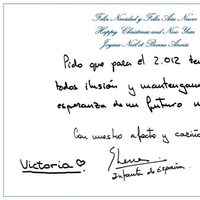 Feliz Navidad y Feliz Año Nuevo
Happy Christmas and New Year
Joyeux Noël et Bonne Année
Pido que para el 2.012 te
todos ilusión y mantengam
esperanza de un futuro m
Con nuestro afecto y cariño
Victoria
Elena
Infanta de España